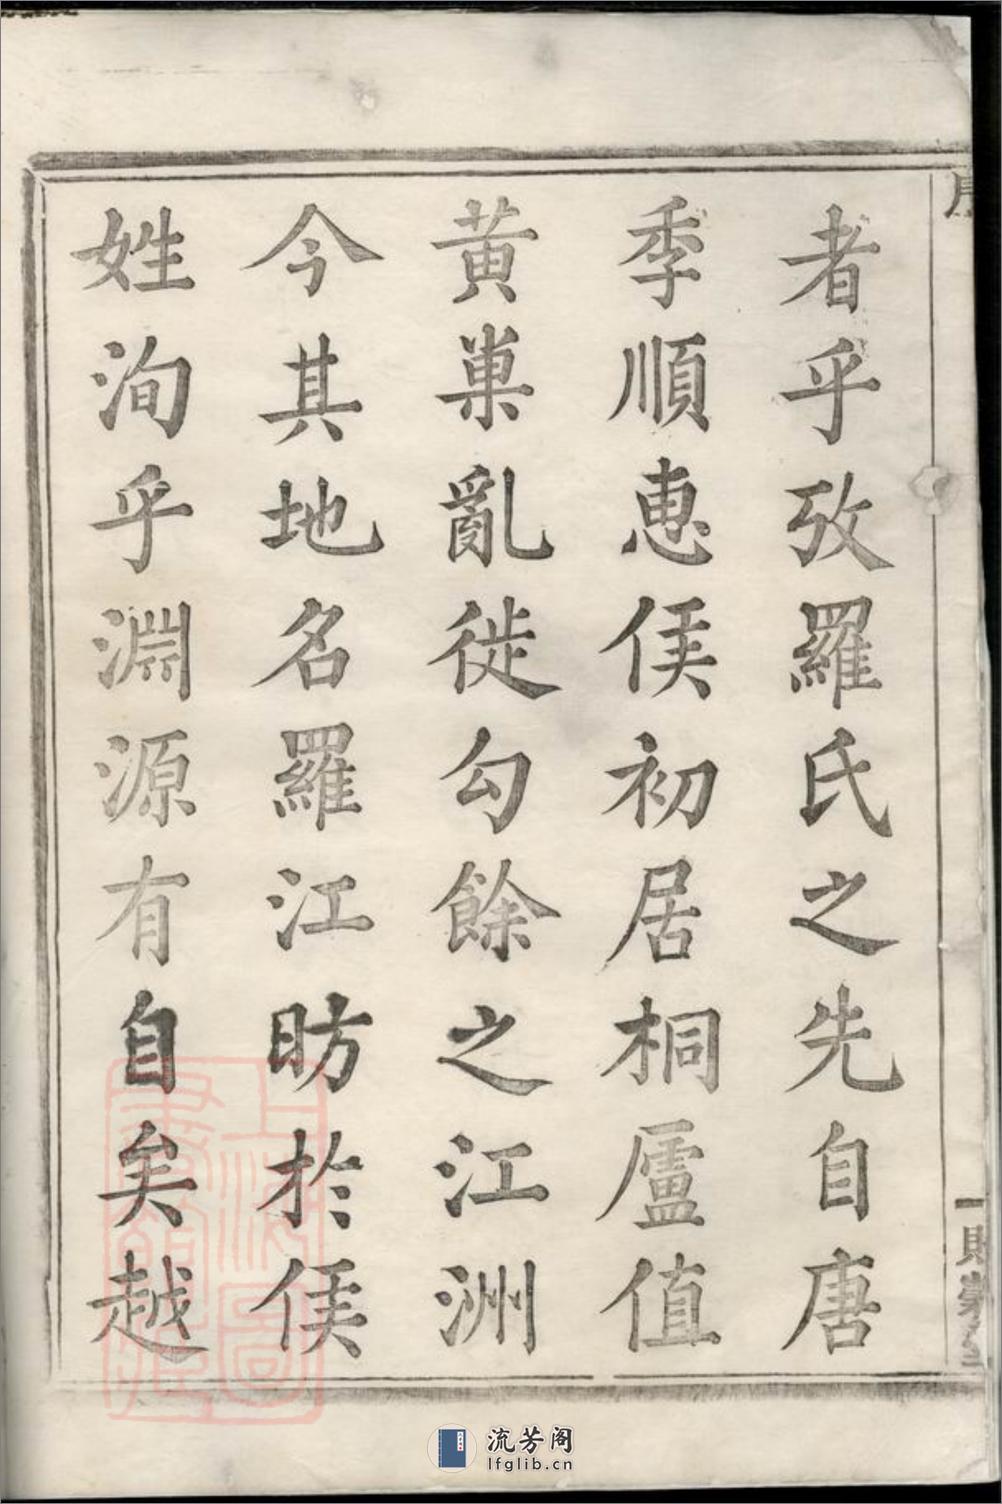 者乎攷羅氏之先自唐
季順惠侯初居桐廬值
黃巢亂徙勾餘之江洲
今其地名羅江昉於侯
姓洵乎淵源有自矣越
上海圖書館藏
流芳阁
lfglib.cn